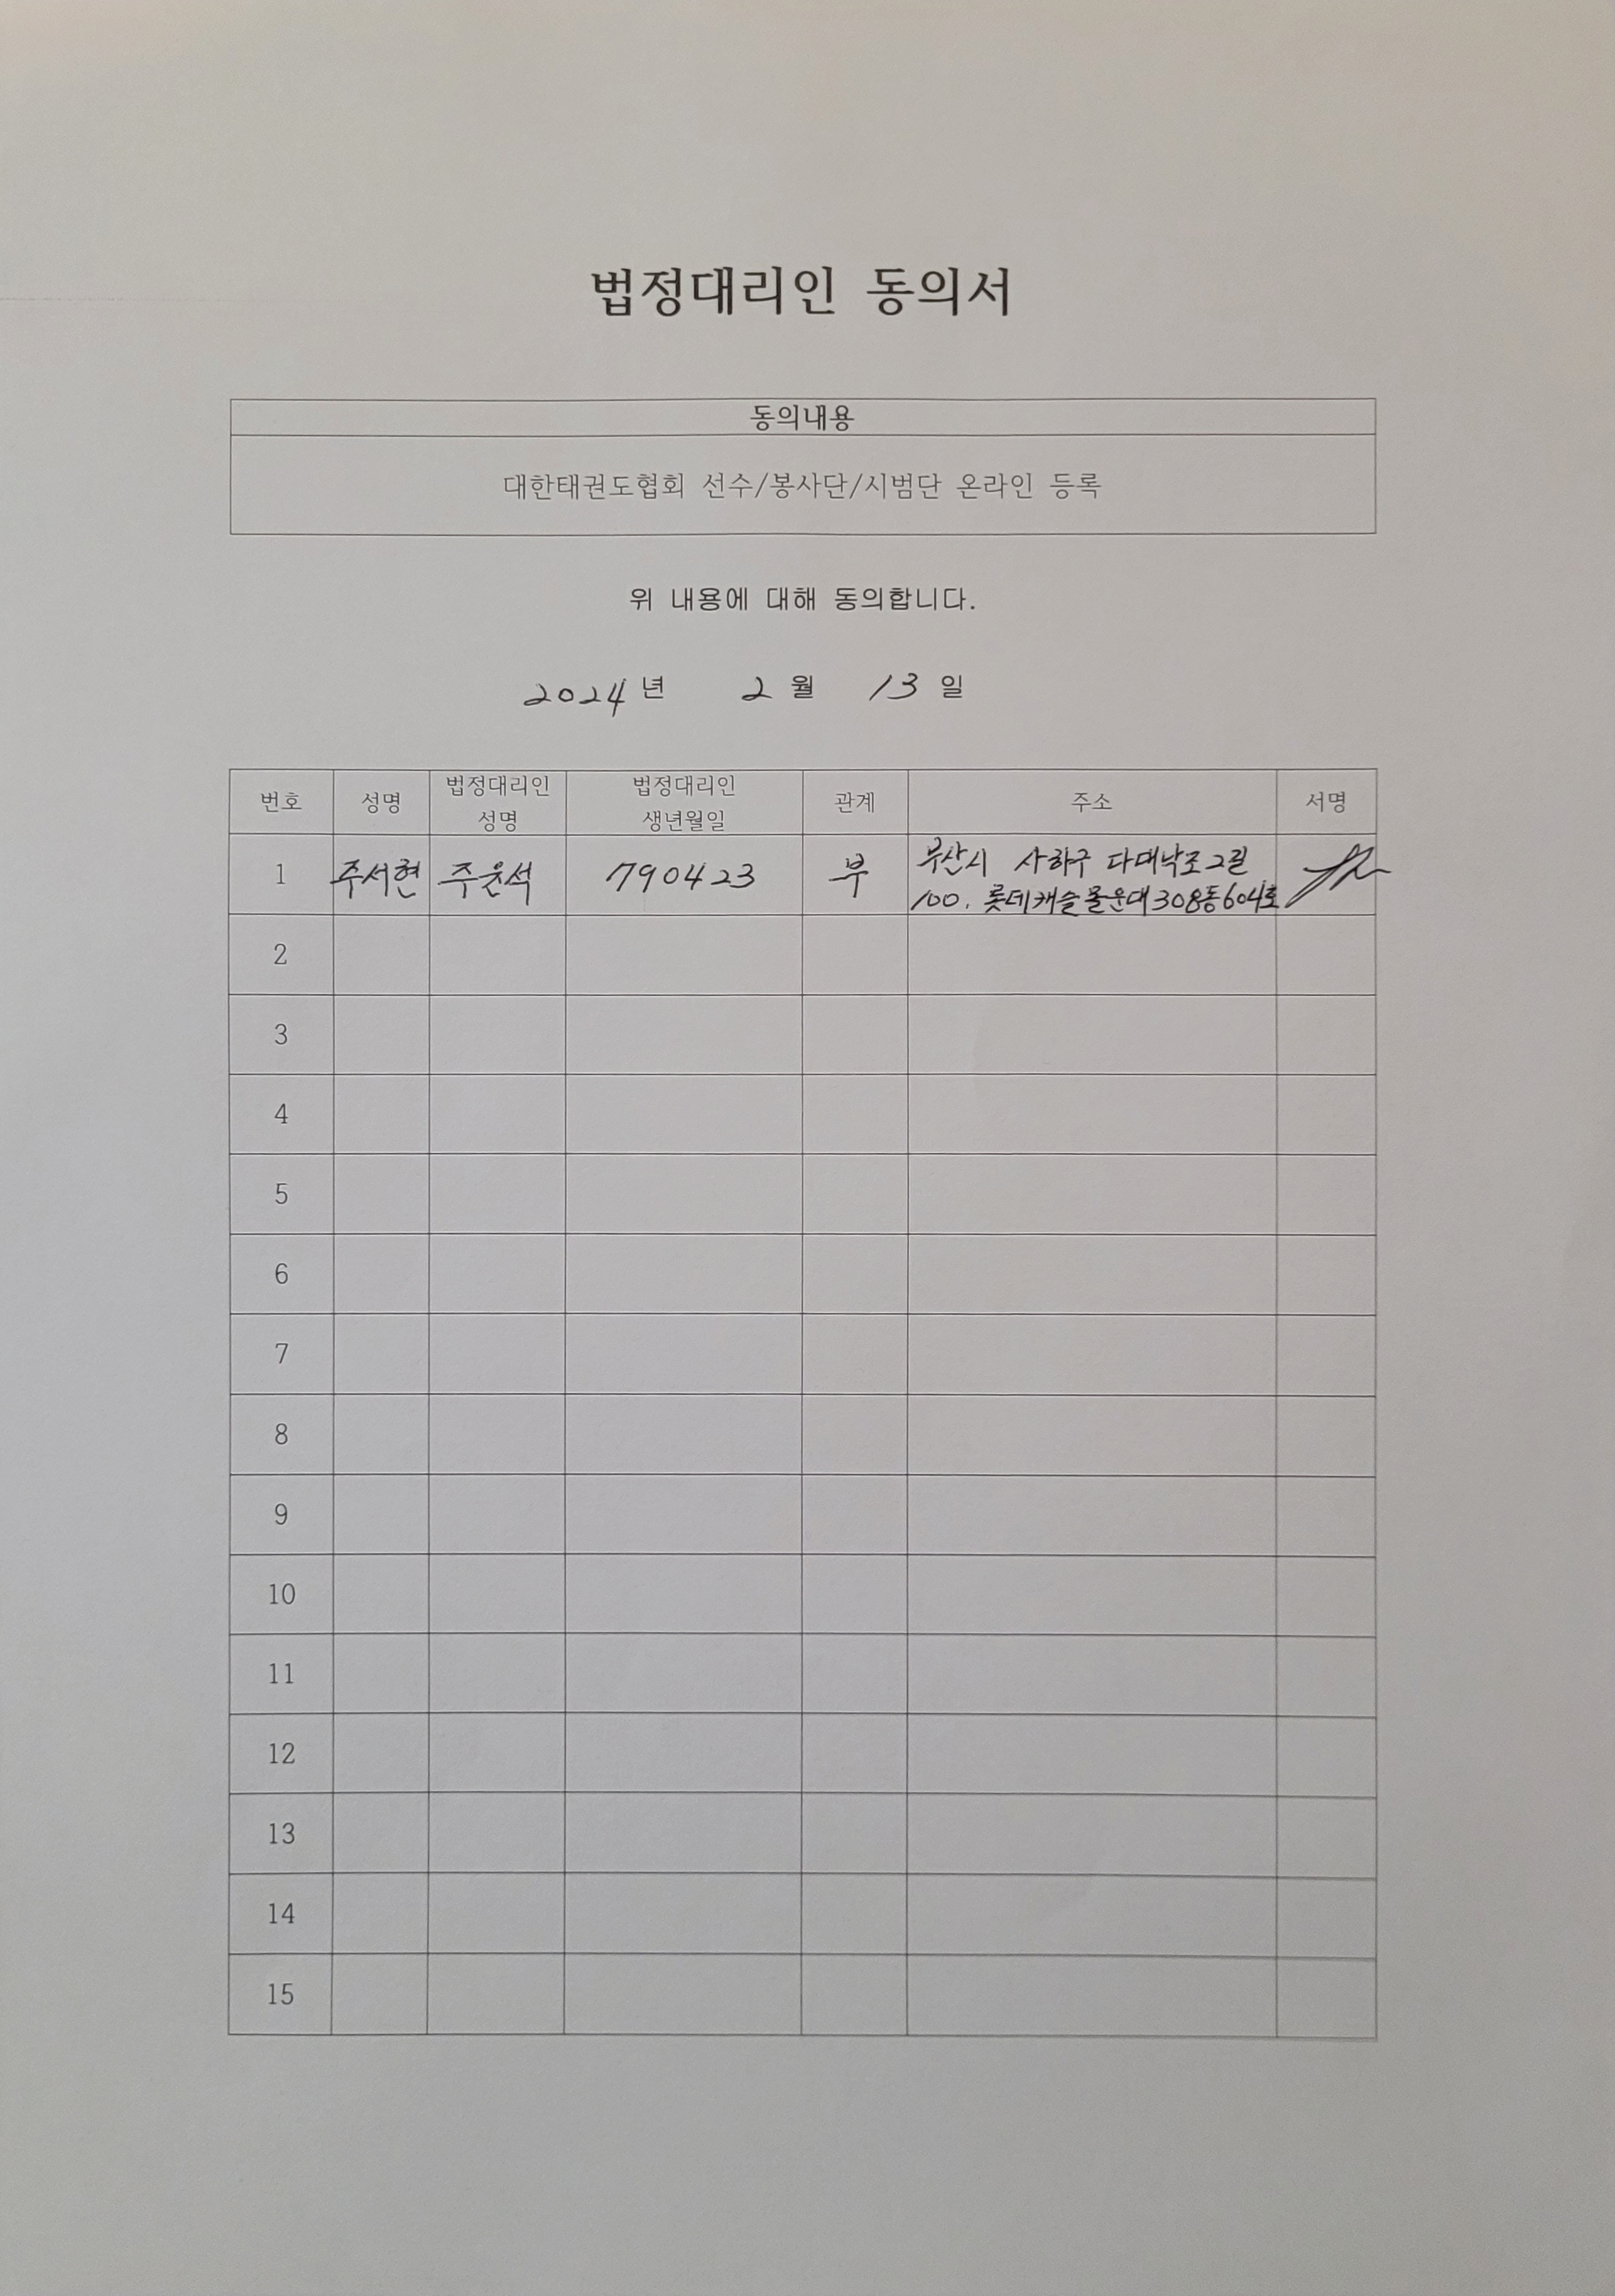 법정대리인 동의서
동의내용
대한태권도협회 선수/봉사단/시범단 온라인 등록
위 내용에 대해 동의합니다.
2024 년 2 월 13 일
번호 성명 법정대리인 성명 법정대리인 생년월일 관계 주소 서명
1 주서현 주윤석 790423 부 부산시 사하구 다대낙조2길
100, 롯데캐슬몰운대 308동 604호
2
3
4
5
6
7
8
9
10
11
12
13
14
15